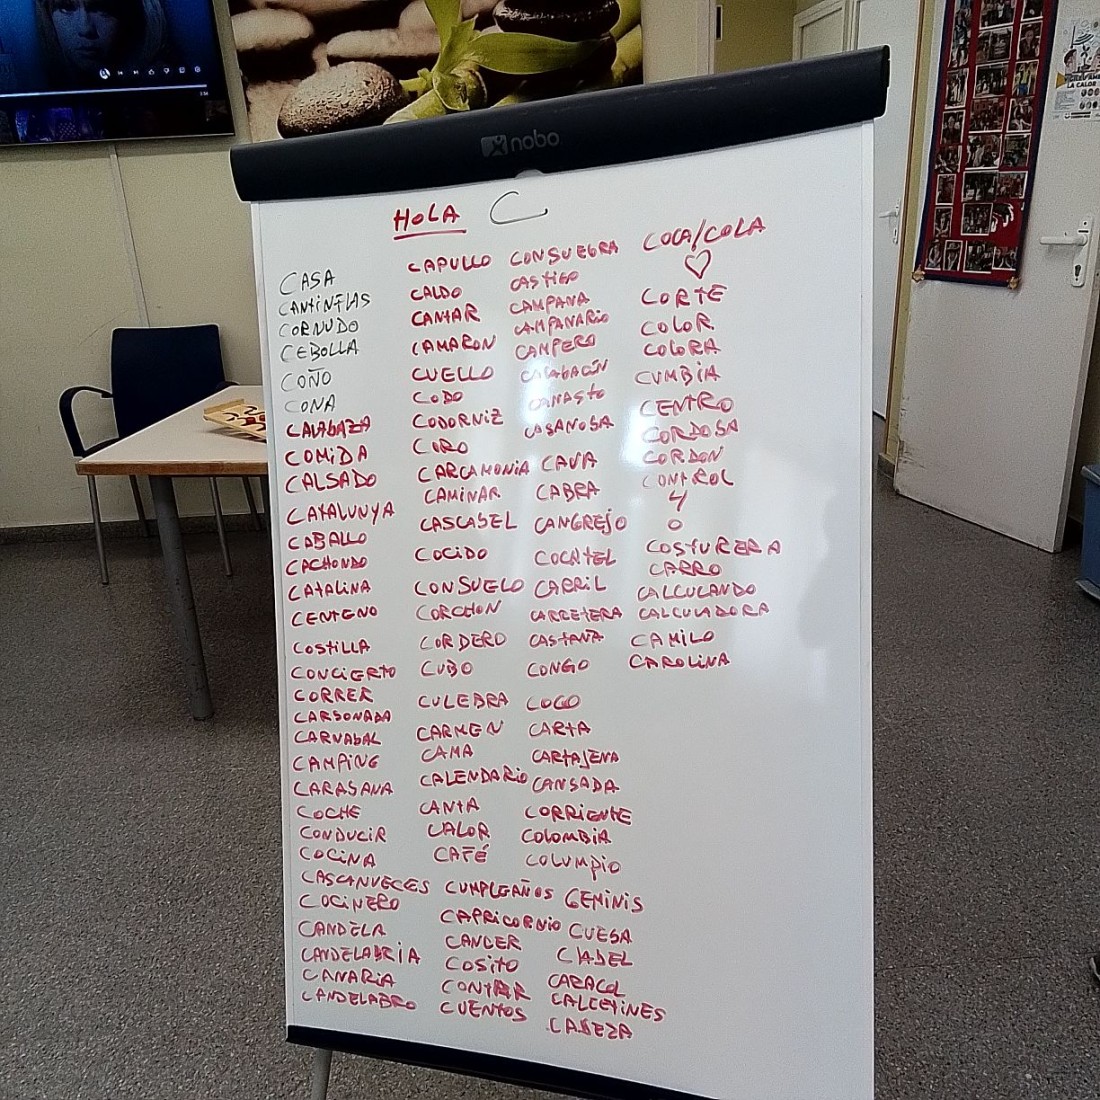 nobo
HOLA C
CASA
CANTINFLAS
CORNUDO
CEBOLLA
COÑO
CONA
CALABAZA
COMIDA
CALSADO
CATALUNYA
CABALLO
CACHONDO
CATALINA
CENTENO
COSTILLA
CONCIERTO
CORRER
CARBONADA
CARNABAL
CAMPING
CARABANA
COCHE
CONDUCIR
COCINA
CASCANUECES
COCINERO
CANDELA
CANDELABRIA
CANARIA
CANDELABRO
CAPULLO
CALDO
CANTAR
CAMARON
CUELLO
CODO
CODORNIZ
CORO
CARCAMONIA
CAMINAR
CASCABEL
COCIDO
CONSUELO
CORCHON
CORDERO
CUBO
CULEBRA
CARMEN
CAMA
CALENDARIO
CANTA
CALOR
CAFÉ
CUMPLEAÑOS
CAPRICORNIO
CANCER
COSITO
CONTAR
CUENTOS
CONSUEGRA
CASTIGO
CAMPANA
CAMPANARIO
CAMPERO
CALABACÍN
CANASTO
CASANOBA
CAVA
CABRA
CANGREJO
COCATEL
CARRIL
CARRETERA
CASTAÑA
CONGO
COCO
CARTA
CARTAJENA
CANSADA
CORRIENTE
COLOMBIA
COLUMPIO
GEMINIS
CUEBA
CLABEL
CARACOL
CALCETINES
CABEZA
COCA/COLA
CORTE
COLOR
COLORA
CUMBIA
CENTRO
CORDOBA
CORDON
CONTROL
Y
O
COSTURERA
CARRO
CALCULANDO
CALCULADORA
CAMILO
CAROLINA
LA CALOR